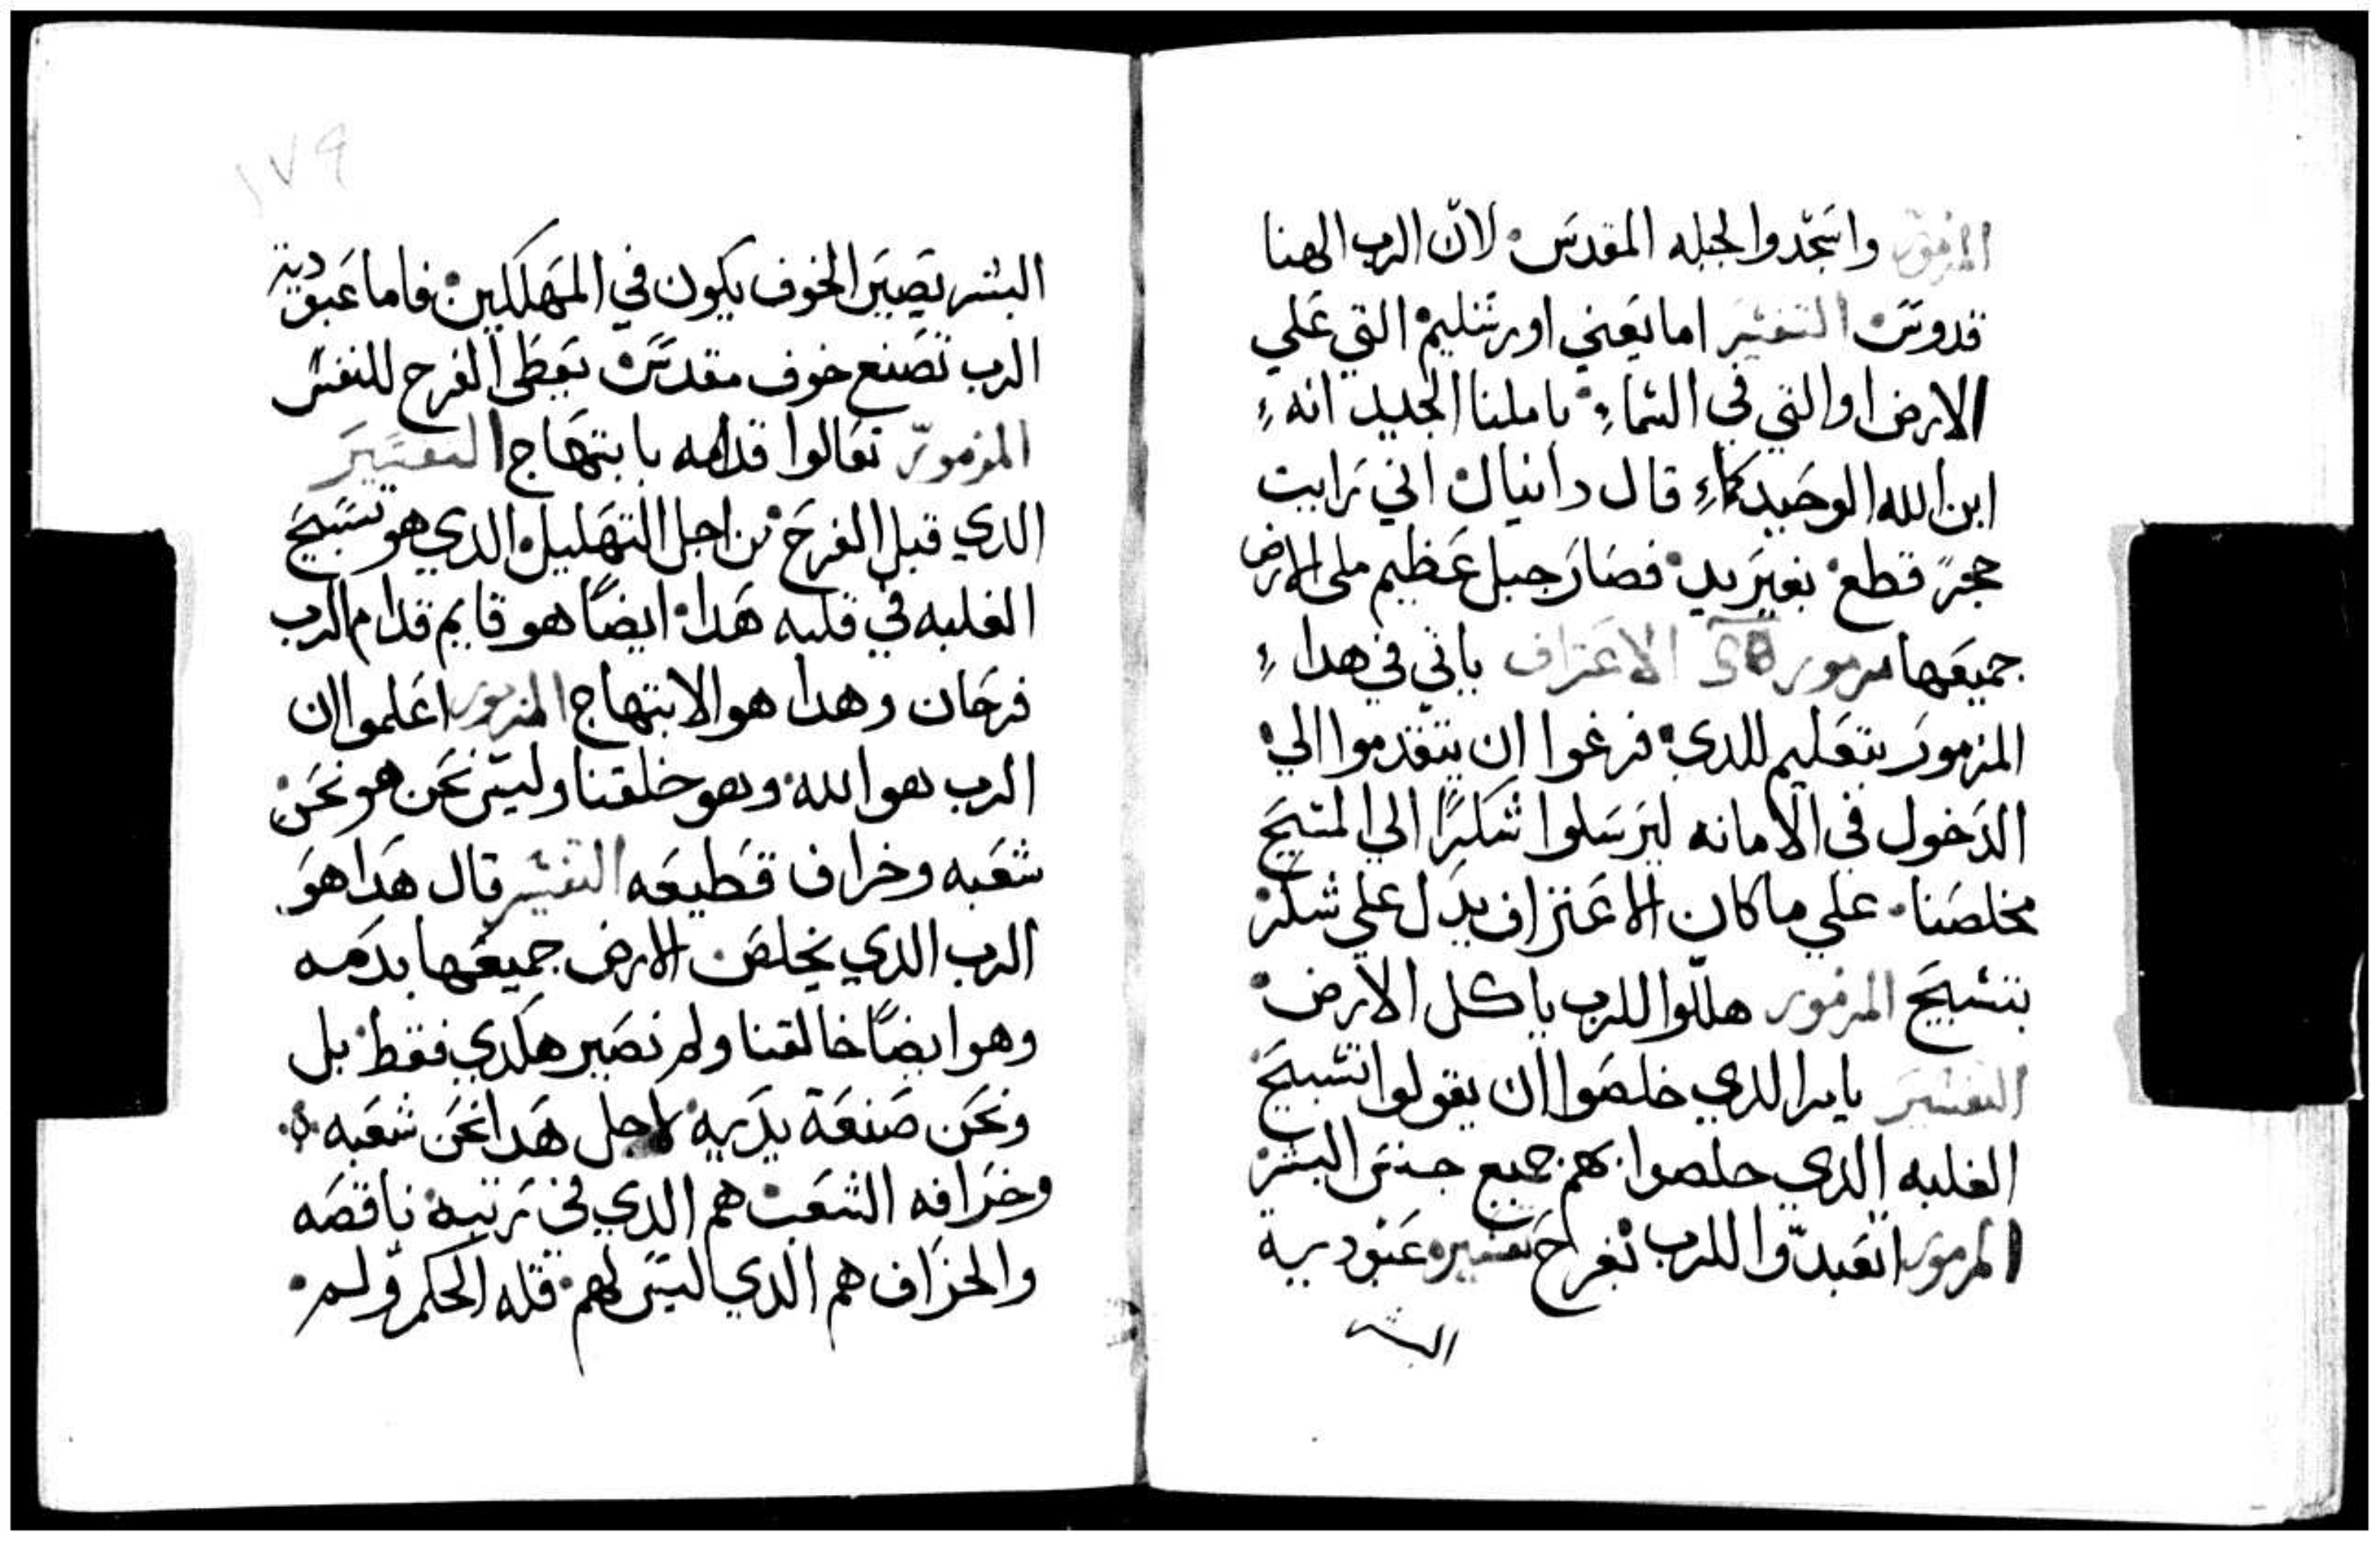 المزمور واسجدوا لجبله المقدس لان الرب الهنا
قدوس التفسير اما يعني اورشليم التي علي
الارض او التي في السماء ياملنا الجديد انه
ابن الله الوحيد كما قال دانيال اني رايت
حجر قطع بغير يد فصار جبل عظيم ملى الارض
جميعها مزمور الاعتراف ياتي في هدا
المزمور بتعليم للدي فرغوا ان يتقدموا الي
الدخول في الامانه ليرسلوا شكرًا الي المسيح
مخلصنا علي ما كان الاعتراف يدل علي شكر
بتسبيح المزمور هللوا للرب يا كل الارض
التفسير يامر الدي خلصوا ان يقولوا تسبيح
الغلبه الدي خلصوا بهم جميع جنس البشر
المزمور اتعبدوا للرب بفراح تفسيره عبودية
البشر
١٧٩
البشر يصير الخوف يكون في المهلكين فاما عبودية
الرب تصنع خوف مقدس يعطى الفرح للنفس
المزمور تعالوا قدامه بابتهاج التفسير
الدي قبل الفرح من اجل التهليل الدي هو تسبيح
الغلبه في قلبه هدا ايضًا هو قايم قدام الرب
فرحان وهدا هو الابتهاج المزمور اعلموا ان
الرب هو الله وهو خلقنا وليس نحن هو نحن
شعبه وخراف قطيعه التفسير قال هدا هو
الرب الدي يخلص الارض جميعها بدمه
وهو ايضًا خالقنا ولم نصير هكدي فقط بل
ونحن صنعة يديه لاجل هدا نحن شعبه
وخرافه الشعب هم الدي في تربية ناقصه
والخراف هم الدي ليس لهم قله الحكم ولم